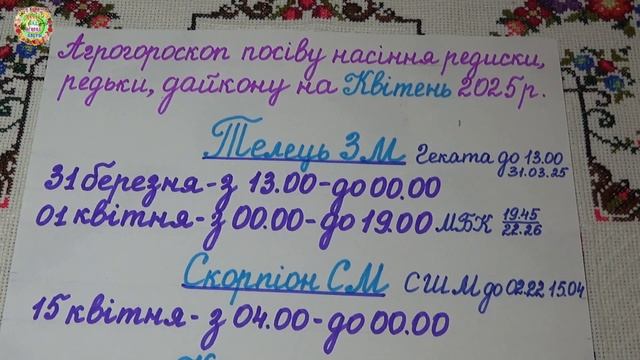 Агрогороскоп посіву насіння редиски,
редьки, дайкону на Квітень 2025р.
Телець З М Геката до 13.00
31.03.25
31 березня - з 13.00 - до 00.00
01 квітня - з 00.00 - до 19.00 МБК 19.45
22.26
Скорпіон СМ СШМ до 02.22 15.04
15 квітня - з 04.00 - до 00.00